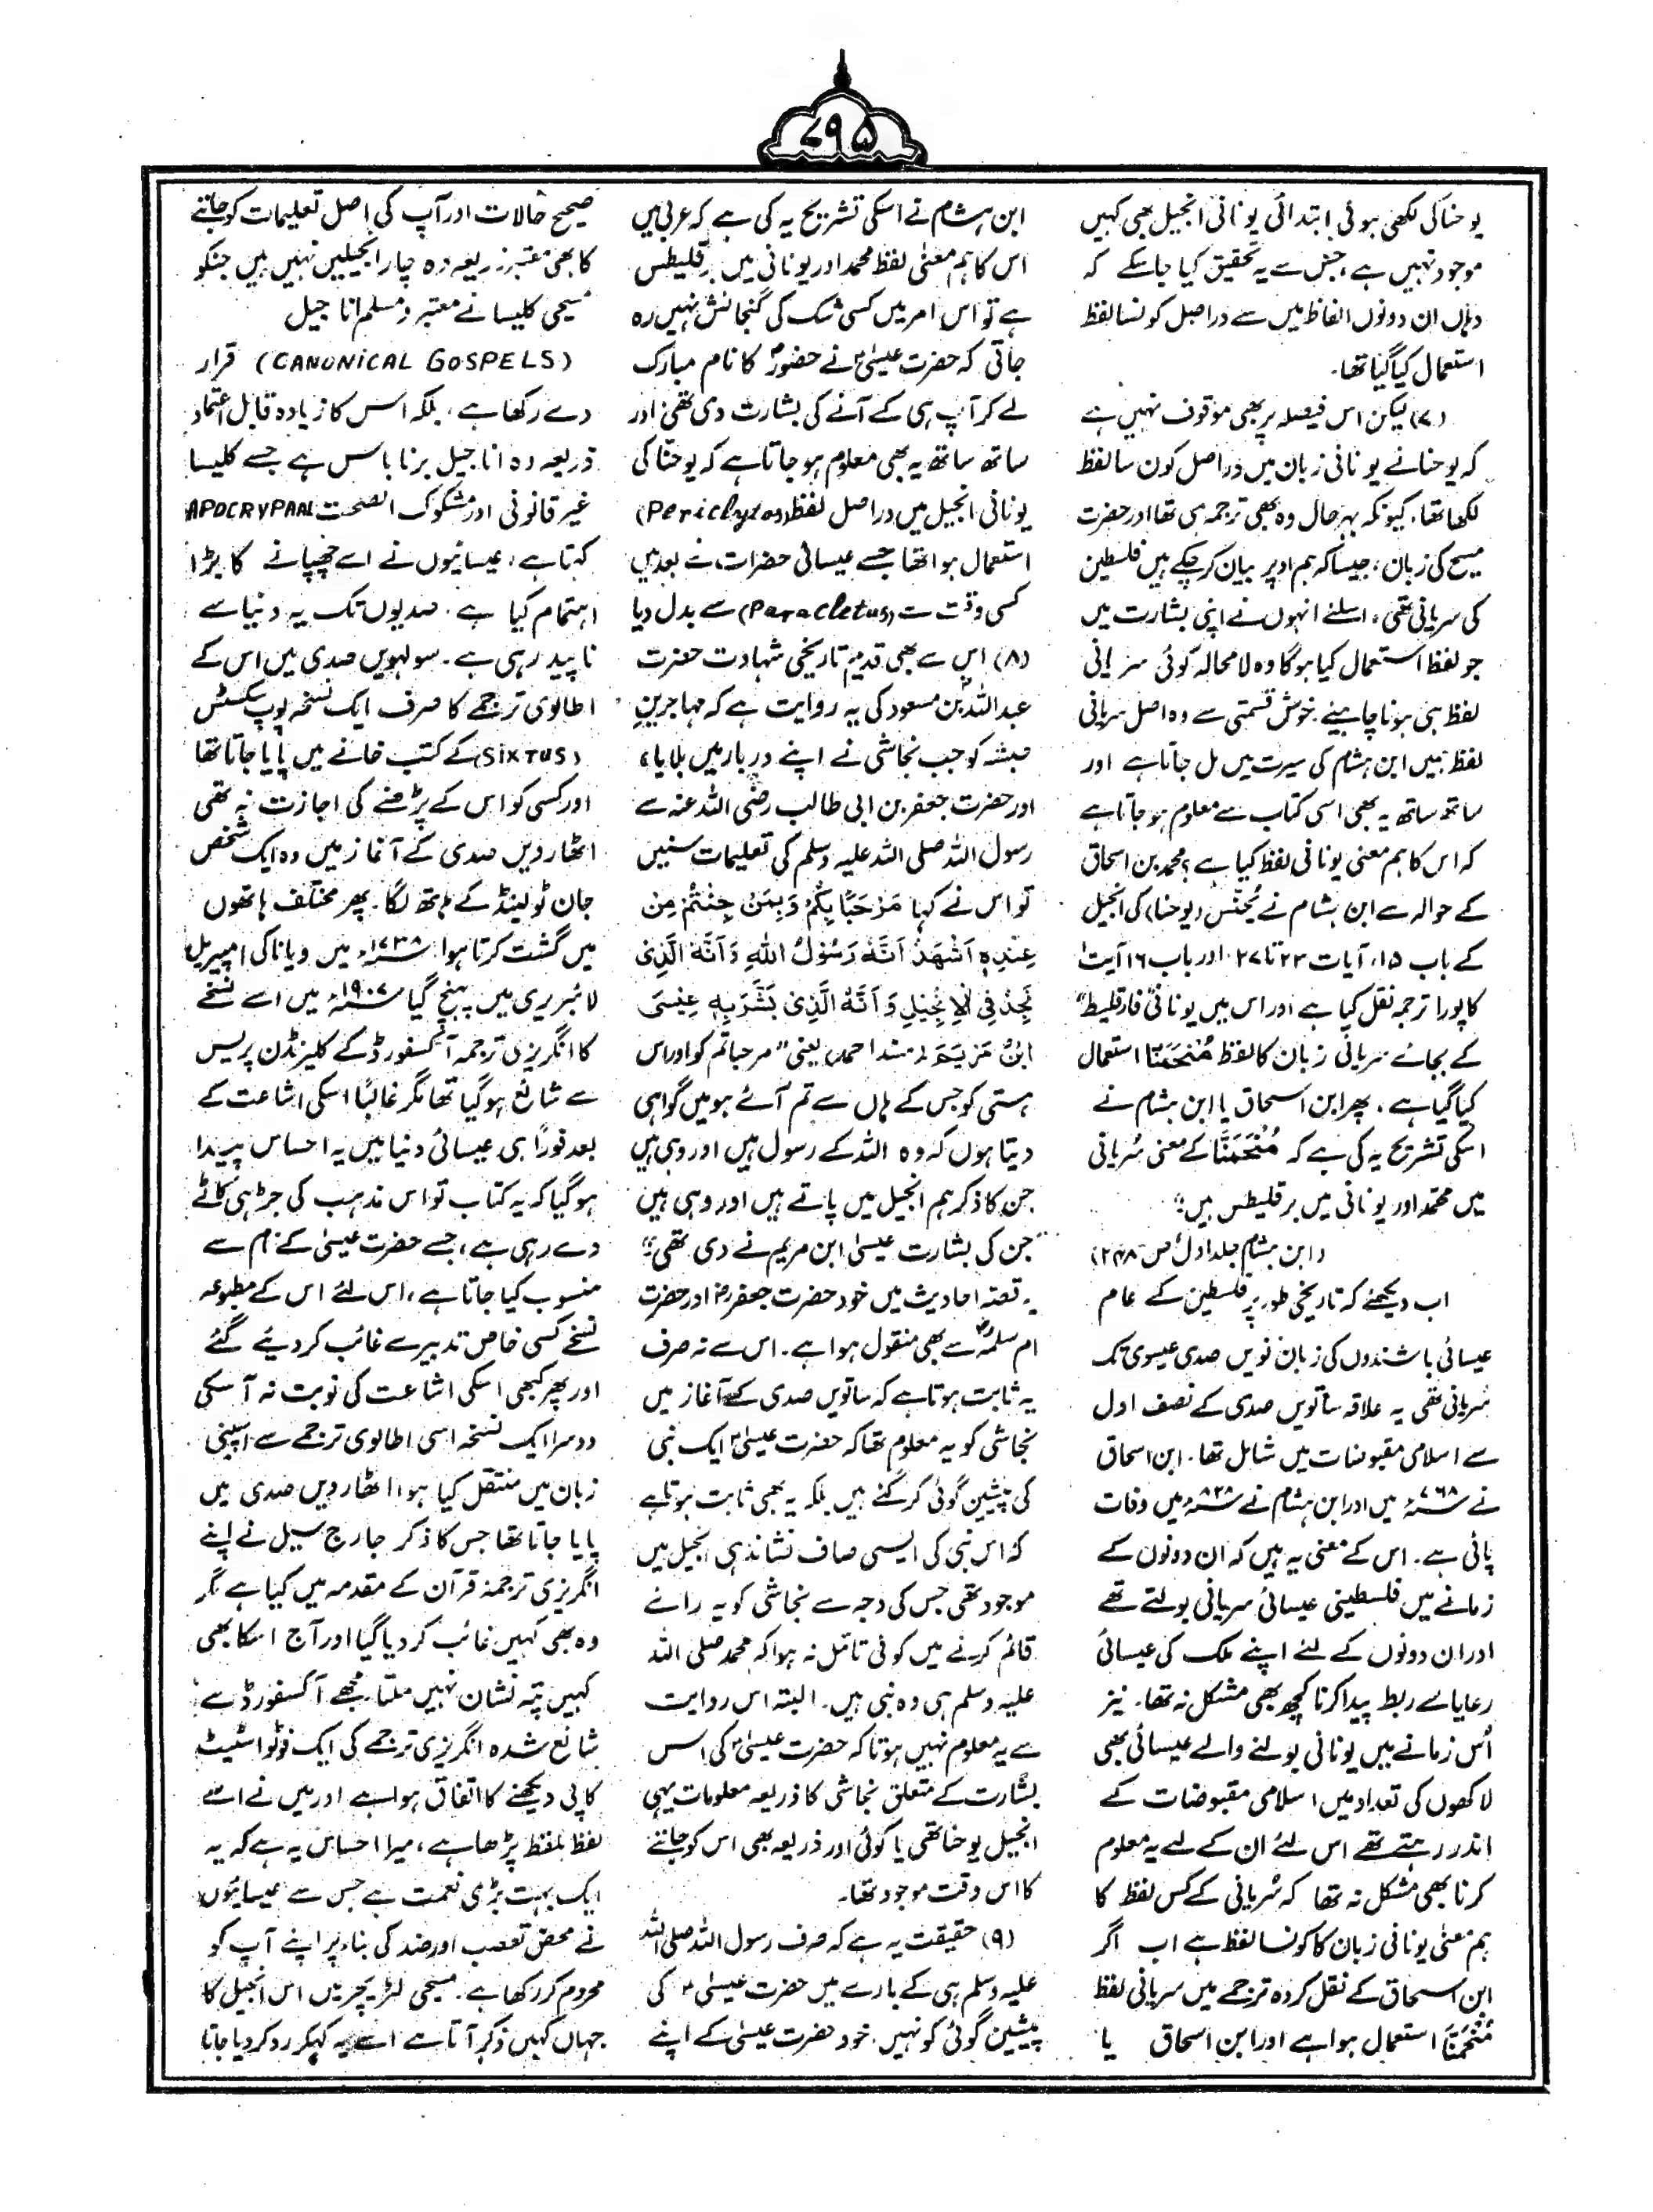 ۷۹۵
یوحنا کی لکھی ہوئی ابتدائی یونانی انجیل بھی کہیں
موجود نہیں ہے، جس سے یہ تحقیق کیا جا سکے کہ
وہاں ان دونوں الفاظ میں سے دراصل کونسا لفظ
استعمال کیا گیا تھا۔
(۷) لیکن اس فیصلہ پر بھی موقوف نہیں ہے
کہ یوحنا نے یونانی زبان میں دراصل کون سا لفظ
لکھا تھا، کیونکہ بہرحال وہ بھی ترجمہ ہی تھا اور حضرت
مسیح کی زبان، جیسا کہ ہم اوپر بیان کر چکے ہیں فلسطین
کی سریانی تھی، اسلئے انہوں نے اپنی بشارت میں
جو لفظ استعمال کیا ہوگا وہ لا محالہ کوئی سریانی
لفظ ہی ہونا چاہیئے۔ خوش قسمتی سے وہ اصل سریانی
لفظ ہمیں ابن ہشام کی سیرت میں مل جاتا ہے اور
ساتھ ساتھ یہ بھی اسی کتاب سے معلوم ہو جاتا ہے
کہ اس کا ہم معنی یونانی لفظ کیا ہے؟ محمد بن اسحاق
کے حوالہ سے ابن ہشام نے یُحَنَّس (یوحنا) کی انجیل
کے باب ۱۵، آیات ۲۳ تا ۲۷۔ اور باب ۱۶ آیت ۱
کا پورا ترجمہ نقل کیا ہے اور اس میں یونانی "فارقلیط"
کے بجائے سریانی زبان کا لفظ مُنْحَمَنَّا استعمال
کیا گیا ہے، پھر ابن اسحاق یا ابن ہشام نے
اسکی تشریح یہ کی ہے کہ مُنْحَمَنَّا کے معنی سُریانی
میں محمّد اور یونانی میں برقلیطس ہیں"۔
(ابن ہشام جلد اول ص ۲۴۸)
اب دیکھئے کہ تاریخی طور پر فلسطین کے عام
عیسائی باشندوں کی زبان نویں صدی عیسوی تک
سُریانی تھی یہ علاقہ ساتویں صدی کے نصف اول
سے اسلامی مقبوضات میں شامل تھا۔ ابن اسحاق
نے ۷۶۸ء میں اور ابن ہشام نے ۸۲۸ء میں وفات
پائی ہے۔ اس کے معنی یہ ہیں کہ ان دونوں کے
زمانے میں فلسطینی عیسائی سریانی بولتے تھے
اور ان دونوں کے لئے اپنے ملک کی عیسائی
رعایا سے ربط پیدا کرنا کچھ بھی مشکل نہ تھا۔ نیز
اُس زمانے میں یونانی بولنے والے عیسائی بھی
لاکھوں کی تعداد میں اسلامی مقبوضات کے
اندر رہتے تھے اس لئے ان کے لیے یہ معلوم
کرنا بھی مشکل نہ تھا کہ سُریانی کے کس لفظ کا
ہم معنی یونانی زبان کا کونسا لفظ ہے اب اگر
ابن اسحاق کے نقل کردہ ترجمے میں سریانی لفظ
مُنْحَمَنَّا استعمال ہوا ہے اور ابن اسحاق یا
ابن ہشام نے اسکی تشریح یہ کی ہے کہ عربی میں
اس کا ہم معنیٰ لفظ محمد اور یونانی میں برقلیطس
ہے تو اس امر میں کسی شک کی گنجائش نہیں رہ
جاتی کہ حضرت عیسیٰؑ نے حضورؐ کا نام مبارک
لے کر آپ ہی کے آنے کی بشارت دی تھی اور
ساتھ ساتھ یہ بھی معلوم ہو جاتا ہے کہ یوحنّا کی
یونانی انجیل میں دراصل لفظ (Periclytos)
استعمال ہوا تھا جسے عیسائی حضرات نے بعد میں
کسی وقت سے (Paracletus) سے بدل دیا
(۸) اس سے بھی قدیم تاریخی شہادت حضرت
عبداللہ بن مسعود کی یہ روایت ہے کہ مہاجرین
حبشہ کو جب نجاشی نے اپنے دربار میں بلایا،
اور حضرت جعفر بن ابی طالب رضی اللہ عنہ سے
رسول اللہ صلی اللہ علیہ وسلم کی تعلیمات سنیں
تو اس نے کہا مَرْحَبًا بِكُمْ وَبِمَنْ جِئْتُمْ مِنْ
عِنْدِهٖ اَشْهَدُ اَنَّهٗ رَسُوْلُ اللهِ وَاَنَّهُ الَّذِىْ
نَجِدُ فِى الْاِنْجِيْلِ وَاَنَّهُ الَّذِىْ بَشَّرَ بِهٖ عِيْسَى
ابْنُ مَرْيَمَ (مسند احمد) یعنی "مرحبا تم کو اور اس
ہستی کو جس کے ہاں سے تم آئے ہو میں گواہی
دیتا ہوں کہ وہ اللہ کے رسول ہیں اور وہی ہیں
جن کا ذکر ہم انجیل میں پاتے ہیں اور وہی ہیں
جن کی بشارت عیسیٰ ابن مریم نے دی تھی"۔
یہ قصہ احادیث میں خود حضرت جعفرؓ اور حضرت
ام سلمہؓ سے بھی منقول ہوا ہے۔ اس سے نہ صرف
یہ ثابت ہوتا ہے کہ ساتویں صدی کے آغاز میں
نجاشی کو یہ معلوم تھا کہ حضرت عیسیٰؑ ایک نبی
کی پیشین گوئی کر گئے ہیں بلکہ یہ بھی ثابت ہوتا ہے
کہ اس نبی کی ایسی صاف نشاندہی انجیل میں
موجود تھی جس کی وجہ سے نجاشی کو یہ رائے
قائم کرنے میں کوئی تامّل نہ ہوا کہ محمد صلی اللہ
علیہ وسلم ہی وہ نبی ہیں۔ البتہ اس روایت
سے یہ معلوم نہیں ہوتا کہ حضرت عیسیٰؑ کی اس
بشارت کے متعلق نجاشی کا ذریعہ معلومات یہی
انجیل یوحنا تھی یا کوئی اور ذریعہ بھی اس کو جاننے
کا اس وقت موجود تھا۔
(۹) حقیقت یہ ہے کہ صرف رسول اللہ صلی اللہ
علیہ وسلم ہی کے بارے میں حضرت عیسیٰؑ کی
پیشین گوئی کو نہیں، خود حضرت عیسیٰ کے اپنے
صحیح حالات اور آپ کی اصل تعلیمات کو جاننے
کا بھی معتبر ذریعہ وہ چار انجیلیں نہیں ہیں جنکو
مسیحی کلیسا نے معتبر و مسلم اناجیل
(CANONICAL GOSPELS) قرار
دے رکھا ہے، بلکہ اس کا زیادہ قابل اعتماد
ذریعہ وہ اناجیل برناباس ہے جسے کلیسا
غیر قانونی اور مشکوک الصحت APOCRYPAAL
کہتا ہے، عیسائیوں نے اسے چھپانے کا بڑا
اہتمام کیا ہے۔ صدیوں تک یہ دنیا سے
ناپید رہی ہے۔ سولہویں صدی میں اس کے
اطالوی ترجمے کا صرف ایک نسخہ پوپ سکسٹس
(SIXTUS) کے کتب خانے میں پایا جاتا تھا
اور کسی کو اس کے پڑھنے کی اجازت نہ تھی
اٹھارویں صدی کے آغاز میں وہ ایک شخص
جان ٹولینڈ کے ہاتھ لگا۔ پھر مختلف ہاتھوں
میں گشت کرتا ہوا ۱۷۳۸ء میں ویانا کی امپیریل
لائبریری میں پہنچ گیا ۱۹۰۷ء میں اسے نسخے
کا انگریزی ترجمہ آکسفورڈ کے کلیرنڈن پریس
سے شائع ہوگیا تھا مگر غالبًا اسکی اشاعت کے
بعد فورًا ہی عیسائی دنیا میں یہ احساس پیدا
ہوگیا کہ یہ کتاب تو اس مذہب کی جڑ ہی کاٹے
دے رہی ہے، جسے حضرت عیسیٰ کے نام سے
منسوب کیا جاتا ہے، اس لئے اس کے مطبوعہ
نسخے کسی خاص تدبیر سے غائب کر دیئے گئے
اور پھر کبھی اسکی اشاعت کی نوبت نہ آسکی
دوسرا ایک نسخہ اسی اطالوی ترجمے سے اسپینی
زبان میں منتقل کیا ہوا اٹھارویں صدی میں
پایا جاتا تھا جس کا ذکر جارج سیل نے اپنے
انگریزی ترجمۂ قرآن کے مقدمہ میں کیا ہے مگر
وہ بھی کہیں غائب کر دیا گیا اور آج اسکا بھی
کہیں پتہ نشان نہیں ملتا۔ مجھے آکسفورڈ سے
شائع شدہ انگریزی ترجمے کی ایک فوٹو اسٹیٹ
کاپی دیکھنے کا اتفاق ہوا ہے اور میں نے اسے
لفظ بلفظ پڑھا ہے، میرا احساس یہ ہے کہ یہ
ایک بہت بڑی نعمت ہے جس سے عیسائیوں
نے محض تعصب اور ضد کی بناء پر اپنے آپ کو
محروم کر رکھا ہے۔ مسیحی لٹریچر میں اس انجیل کا
جہاں کہیں ذکر آتا ہے اسے یہ کہہ کر رد کر دیا جاتا